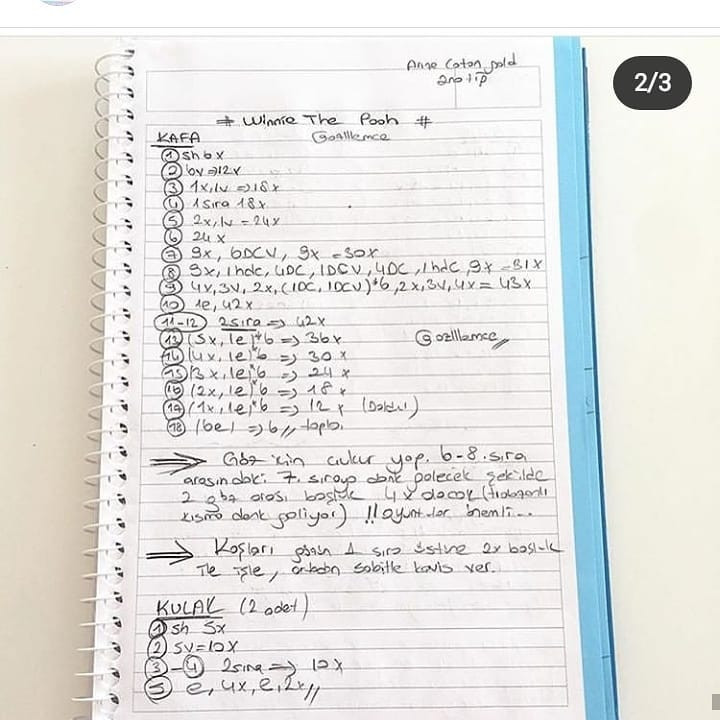 2/3
Anne Coton gold
2no tip
# Winnie The Pooh #
Gozlllemce
KAFA
① sh 6x
② 6v ⇒ 12x
③ 1x,1v ⇒ 18x
④ 1 sıra 18x
⑤ 2x,1v = 24x
⑥ 24x
⑦ 9x, 6DCV, 9x = 30x
⑧ 9x, 1hdc, 4DC, 1DCV, 4DC, 1hdc, 9x = 31x
⑨ 4x, 3v, 2x, (1DC, 1DCV)*6, 2x, 3v, 4x = 43x
⑩ 1e, 42x
⑪-⑫ 2sıra ⇒ 42x
⑬ (5x, 1e)*6 ⇒ 36x
Gozlllemce
⑭ (4x, 1e)*6 ⇒ 30x
⑮ (3x, 1e)*6 ⇒ 24x
⑯ (2x, 1e)*6 ⇒ 18x
(1x, 1e)*6 ⇒ 12x (Doldur)
⑱ (6e) ⇒ 6// topla.
⇒ Göz için çukur yap. 6-8.sıra
arasındaki 7. sıraya denk gelecek şekilde
2 göz arası boşluk 4x olacak
kısmo denk geliyor) !! oyuntular önemli...
⇒ Kaşları gözün 1 sıra üstüne 2x boşluk
ile işle, ortadan sabitle kavis ver.
KULAK (2 adet)
① sh 5x
② 5v=10x
③-④ 2sıra ⇒ 10x
⑤ e, 4x, e, 2x//